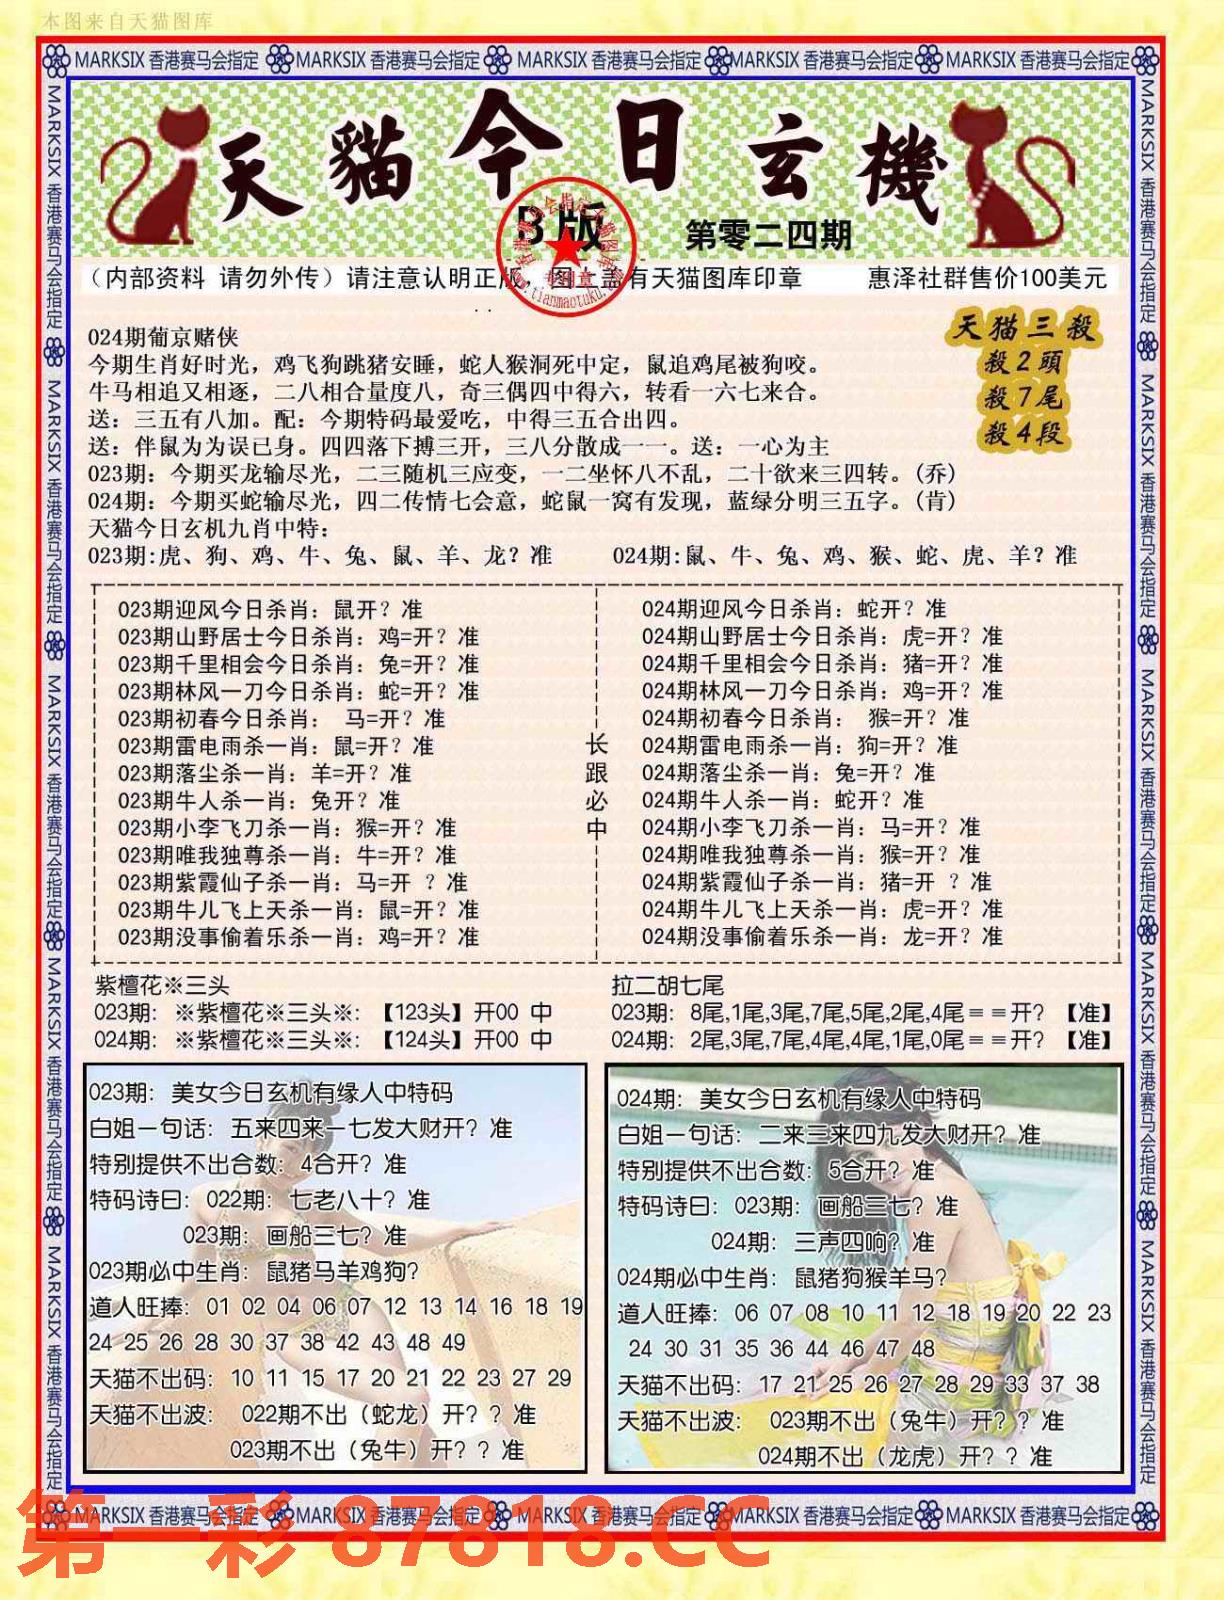 本图来自天猫图库
MARKSIX 香港赛马会指定 MARKSIX 香港赛马会指定 MARKSIX 香港赛马会指定 MARKSIX 香港赛马会指定 MARKSIX 香港赛马会指定
天貓今日玄機
B版
第零二四期
(内部资料 请勿外传)请注意认明正版 图上盖有天猫图库印章 惠泽社群售价100美元
天猫三殺
殺2頭
殺7尾
殺4段
024期葡京赌侠
今期生肖好时光，鸡飞狗跳猪安睡，蛇人猴洞死中定，鼠追鸡尾被狗咬。
牛马相追又相逐，二八相合量度八，奇三偶四中得六，转看一六七来合。
送：三五有八加。配：今期特码最爱吃，中得三五合出四。
送：伴鼠为为误已身。四四落下搏三开，三八分散成一一。送：一心为主
023期：今期买龙输尽光，二三随机三应变，一二坐怀八不乱，二十欲来三四转。(乔)
024期：今期买蛇输尽光，四二传情七会意，蛇鼠一窝有发现，蓝绿分明三五字。(肯)
天猫今日玄机九肖中特：
023期:虎、狗、鸡、牛、兔、鼠、羊、龙？准 024期:鼠、牛、兔、鸡、猴、蛇、虎、羊？准
023期迎风今日杀肖：鼠开？准
023期山野居士今日杀肖：鸡=开？准
023期千里相会今日杀肖：兔=开？准
023期林风一刀今日杀肖：蛇=开？准
023期初春今日杀肖： 马=开？准
023期雷电雨杀一肖：鼠=开？准
023期落尘杀一肖：羊=开？准
023期牛人杀一肖：兔开？准
023期小李飞刀杀一肖：猴=开？准
023期唯我独尊杀一肖：牛=开？准
023期紫霞仙子杀一肖：马=开 ？准
023期牛儿飞上天杀一肖：鼠=开？准
023期没事偷着乐杀一肖：鸡=开？准
长跟必中
024期迎风今日杀肖：蛇开？准
024期山野居士今日杀肖：虎=开？准
024期千里相会今日杀肖：猪=开？准
024期林风一刀今日杀肖：鸡=开？准
024期初春今日杀肖： 猴=开？准
024期雷电雨杀一肖：狗=开？准
024期落尘杀一肖：兔=开？准
024期牛人杀一肖：蛇开？准
024期小李飞刀杀一肖：马=开？准
024期唯我独尊杀一肖：猴=开？准
024期紫霞仙子杀一肖：猪=开 ？准
024期牛儿飞上天杀一肖：虎=开？准
024期没事偷着乐杀一肖：龙=开？准
紫檀花※三头
023期：※紫檀花※三头※：【123头】开00 中
024期：※紫檀花※三头※：【124头】开00 中
拉二胡七尾
023期：8尾,1尾,3尾,7尾,5尾,2尾,4尾＝＝开？【准】
024期：2尾,3尾,7尾,4尾,4尾,1尾,0尾＝＝开？【准】
023期：美女今日玄机有缘人中特码
白姐一句话：五来四来一七发大财开？准
特别提供不出合数：4合开？准
特码诗曰：022期：七老八十？准
023期：画船三七？准
023期必中生肖：鼠猪马羊鸡狗?
道人旺捧：01 02 04 06 07 12 13 14 16 18 19
24 25 26 28 30 37 38 42 43 48 49
天猫不出码：10 11 15 17 20 21 22 23 27 29
天猫不出波： 022期不出（蛇龙）开？？准
023期不出（兔牛）开？？准
024期：美女今日玄机有缘人中特码
白姐一句话：二来三来四九发大财开？准
特别提供不出合数：5合开？准
特码诗曰：023期：画船三七？准
024期：三声四响？准
024期必中生肖：鼠猪狗猴羊马?
道人旺捧：06 07 08 10 11 12 18 19 20 22 23
24 30 31 35 36 44 46 47 48
天猫不出码：17 21 25 26 27 28 29 33 37 38
天猫不出波： 023期不出（兔牛）开？？准
024期不出（龙虎）开？？准
MARKSIX 香港赛马会指定 MARKSIX 香港赛马会指定 MARKSIX 香港赛马会指定 MARKSIX 香港赛马会指定 MARKSIX 香港赛马会指定
第一彩 87818.CC